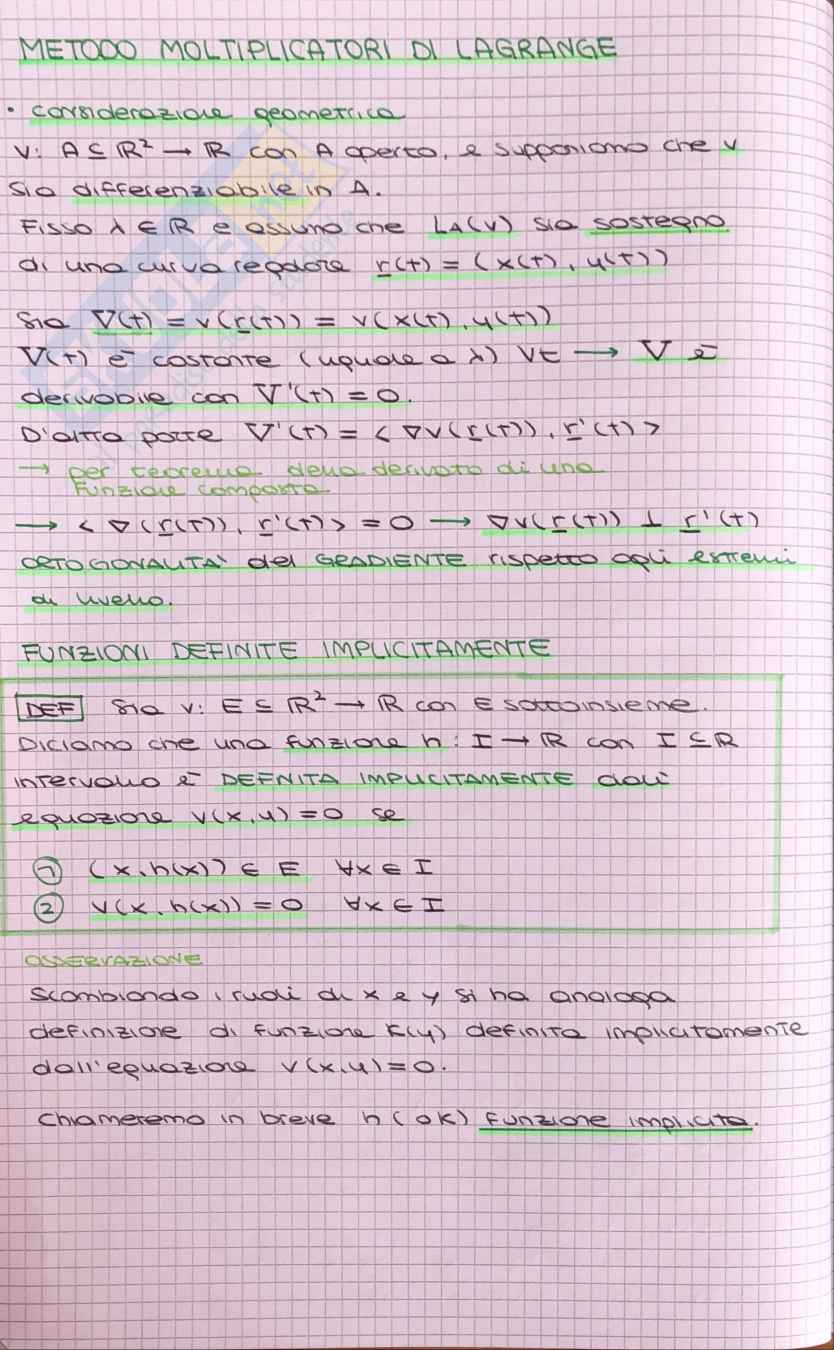 METODO MOLTIPLICATORI DI LAGRANGE
• considerazione geometrica
V: A ⊆ ℝ² → ℝ con A aperto, e supponiamo che v
sia differenziabile in A.
Fisso λ ∈ ℝ e assumo che L_λ(v) sia sostegno
di una curva regolare r(t) = (x(t), y(t))
Sia V(t) = v(r(t)) = v(x(t), y(t))
V(t) è costante (uguale a λ) ∀t → V è
derivabile con V'(t) = 0.
D'altra parte V'(t) = < ∇v(r(t)), r'(t) >
→ per teorema della derivata di una
funzione composta
→ < ∇(r(t)), r'(t) > = 0 → ∇v(r(t)) ⊥ r'(t)
ORTOGONALITA' del GRADIENTE rispetto agli estremi
di livello.
FUNZIONI DEFINITE IMPLICITAMENTE
DEF Sia v: E ⊆ ℝ² → ℝ con E sottoinsieme.
Diciamo che una funzione h: I → ℝ con I ⊆ ℝ
intervallo è DEFINITA IMPLICITAMENTE dall'
equazione v(x,y) = 0 se
① (x, h(x)) ∈ E ∀x ∈ I
② v(x, h(x)) = 0 ∀x ∈ I
OSSERVAZIONE
Scambiando i ruoli di x e y si ha analoga
definizione di funzione k(y) definita implicitamente
dall'equazione v(x,y) = 0.
Chiameremo in breve h (o k) funzione implicita.